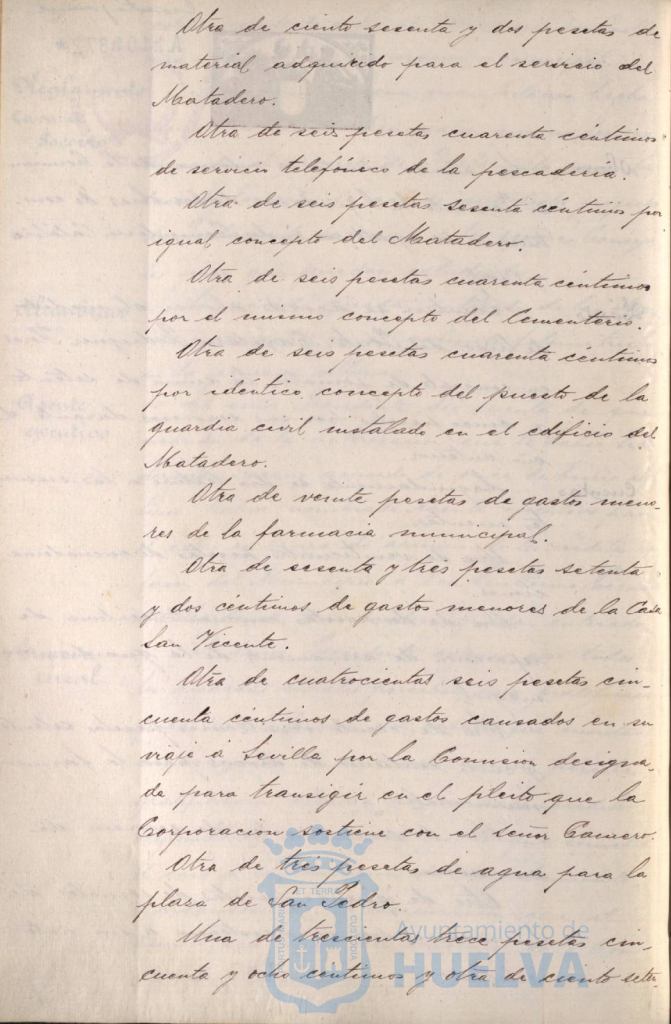 Otra de ciento sesenta y dos pesetas de
material adquirido para el servicio del
Matadero.
Otra de seis pesetas cuarenta céntimos
de servicio telefónico de la pescadería.
Otra de seis pesetas sesenta céntimos por
igual concepto del Matadero.
Otra de seis pesetas cuarenta céntimos
por el mismo concepto del Cementerio.
Otra de seis pesetas cuarenta céntimos
por idéntico concepto del puesto de la
guardia civil instalado en el edificio del
Matadero.
Otra de veinte pesetas de gastos meno-
res de la farmacia municipal.
Otra de sesenta y tres pesetas setenta
y dos céntimos de gastos menores de la Casa
San Vicente.
Otra de cuatrocientas seis pesetas cin-
cuenta céntimos de gastos causados en su
viaje á Sevilla por la Comision designa-
da para transigir en el pleito que la
Corporacion sostiene con el señor
Otra de tres pesetas de agua para la
plaza de San Pedro.
Una de trescientas trece pesetas cin-
cuenta y ocho céntimos y otra de ciento seten-
Ayuntamiento de
HUELVA